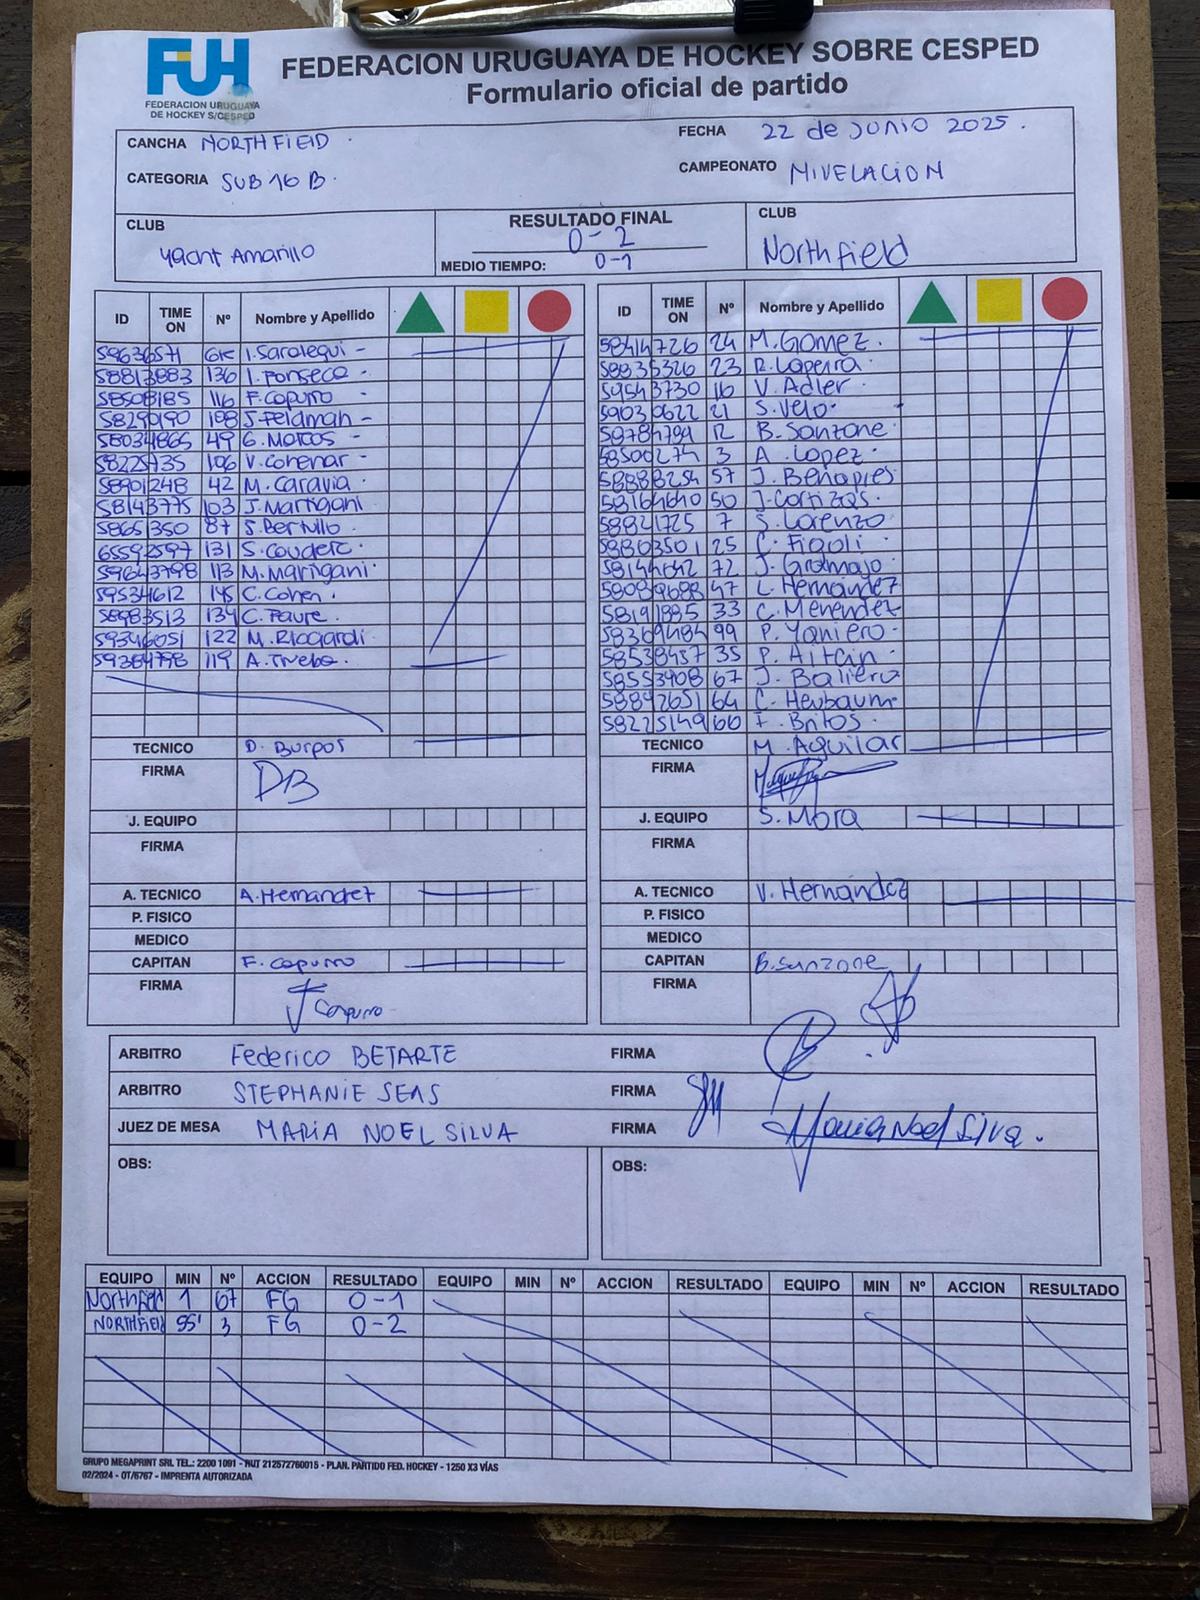 FUH
FEDERACION URUGUAYA
DE HOCKEY S/CESPED
FEDERACION URUGUAYA DE HOCKEY SOBRE CESPED
Formulario oficial de partido
CANCHA NORTHFIELD
FECHA 22 de Junio 2025.
CATEGORIA SUB 16 B.
CAMPEONATO NIVELACION
CLUB
Yacht Amarillo
RESULTADO FINAL
0-2
MEDIO TIEMPO: 0-1
CLUB
Northfield
ID TIME ON Nº Nombre y Apellido
59636571 I. Saralegui -
58813883 136 I. Fonseca -
58508185 116 F. Capurro -
58290190 108 J. Feldman -
58034865 49 G. Marcos -
58225735 106 V. Cohenar -
58901248 42 M. Caravia -
58143775 103 J. Martigani
5865 350 87 S. Bertullo
65592597 131 S. Couderc.
59643798 113 M. Martigani
59534612 145 C. Cohen.
58983513 134 C. Faure.
59346051 122 M. Riccardi
59384798 119 A.
TECNICO D. Burgos
FIRMA DB
J. EQUIPO
FIRMA
A. TECNICO A. Hernandez
P. FISICO
MEDICO
CAPITAN F. Capurro
FIRMA Capurro
ID TIME ON Nº Nombre y Apellido
58414726 24 M. Gomez.
58835326 23 R. Lapeira
59543730 16 V. Adler
59030622 21 S. Velo.
59784794 12 B. Sanzone
58500274 3 A. Lopez.
58888254 57 J. Benapres
58164640 50 J. Cortizas.
58841725 7 S. Lorenzo
58803501 25 C. Figoli
58144642 72 J. Gramajo
58089688 47 L. Hernandez
58191885 33 C. Menendez
58369484 99 P. Yaniero
58538457 35 P. Aitcin
58553908 67 J. Baliero
58892651 64 C. Heubaum
58225149 60 F. Britos
TECNICO M. Aguilar
FIRMA
J. EQUIPO S. Mora
FIRMA
A. TECNICO V. Hernández
P. FISICO
MEDICO
CAPITAN B. Sanzone
FIRMA
ARBITRO Federico BETARTE FIRMA
ARBITRO STEPHANIE SEAS FIRMA
JUEZ DE MESA MARIA NOEL SILVA FIRMA Maria Noel Silva.
OBS: OBS:
EQUIPO MIN Nº ACCION RESULTADO EQUIPO MIN Nº ACCION RESULTADO EQUIPO MIN Nº ACCION RESULTADO
Northfield 1 67 FG 0-1
NORTHFIELD 55' 3 FG 0-2
GRUPO MEGAPRINT SRL TEL.: 2200 1091 - RUT 212572760015 - PLAN. PARTIDO FED. HOCKEY - 1250 X3 VÍAS
02/2024 - OT/6767 - IMPRENTA AUTORIZADA